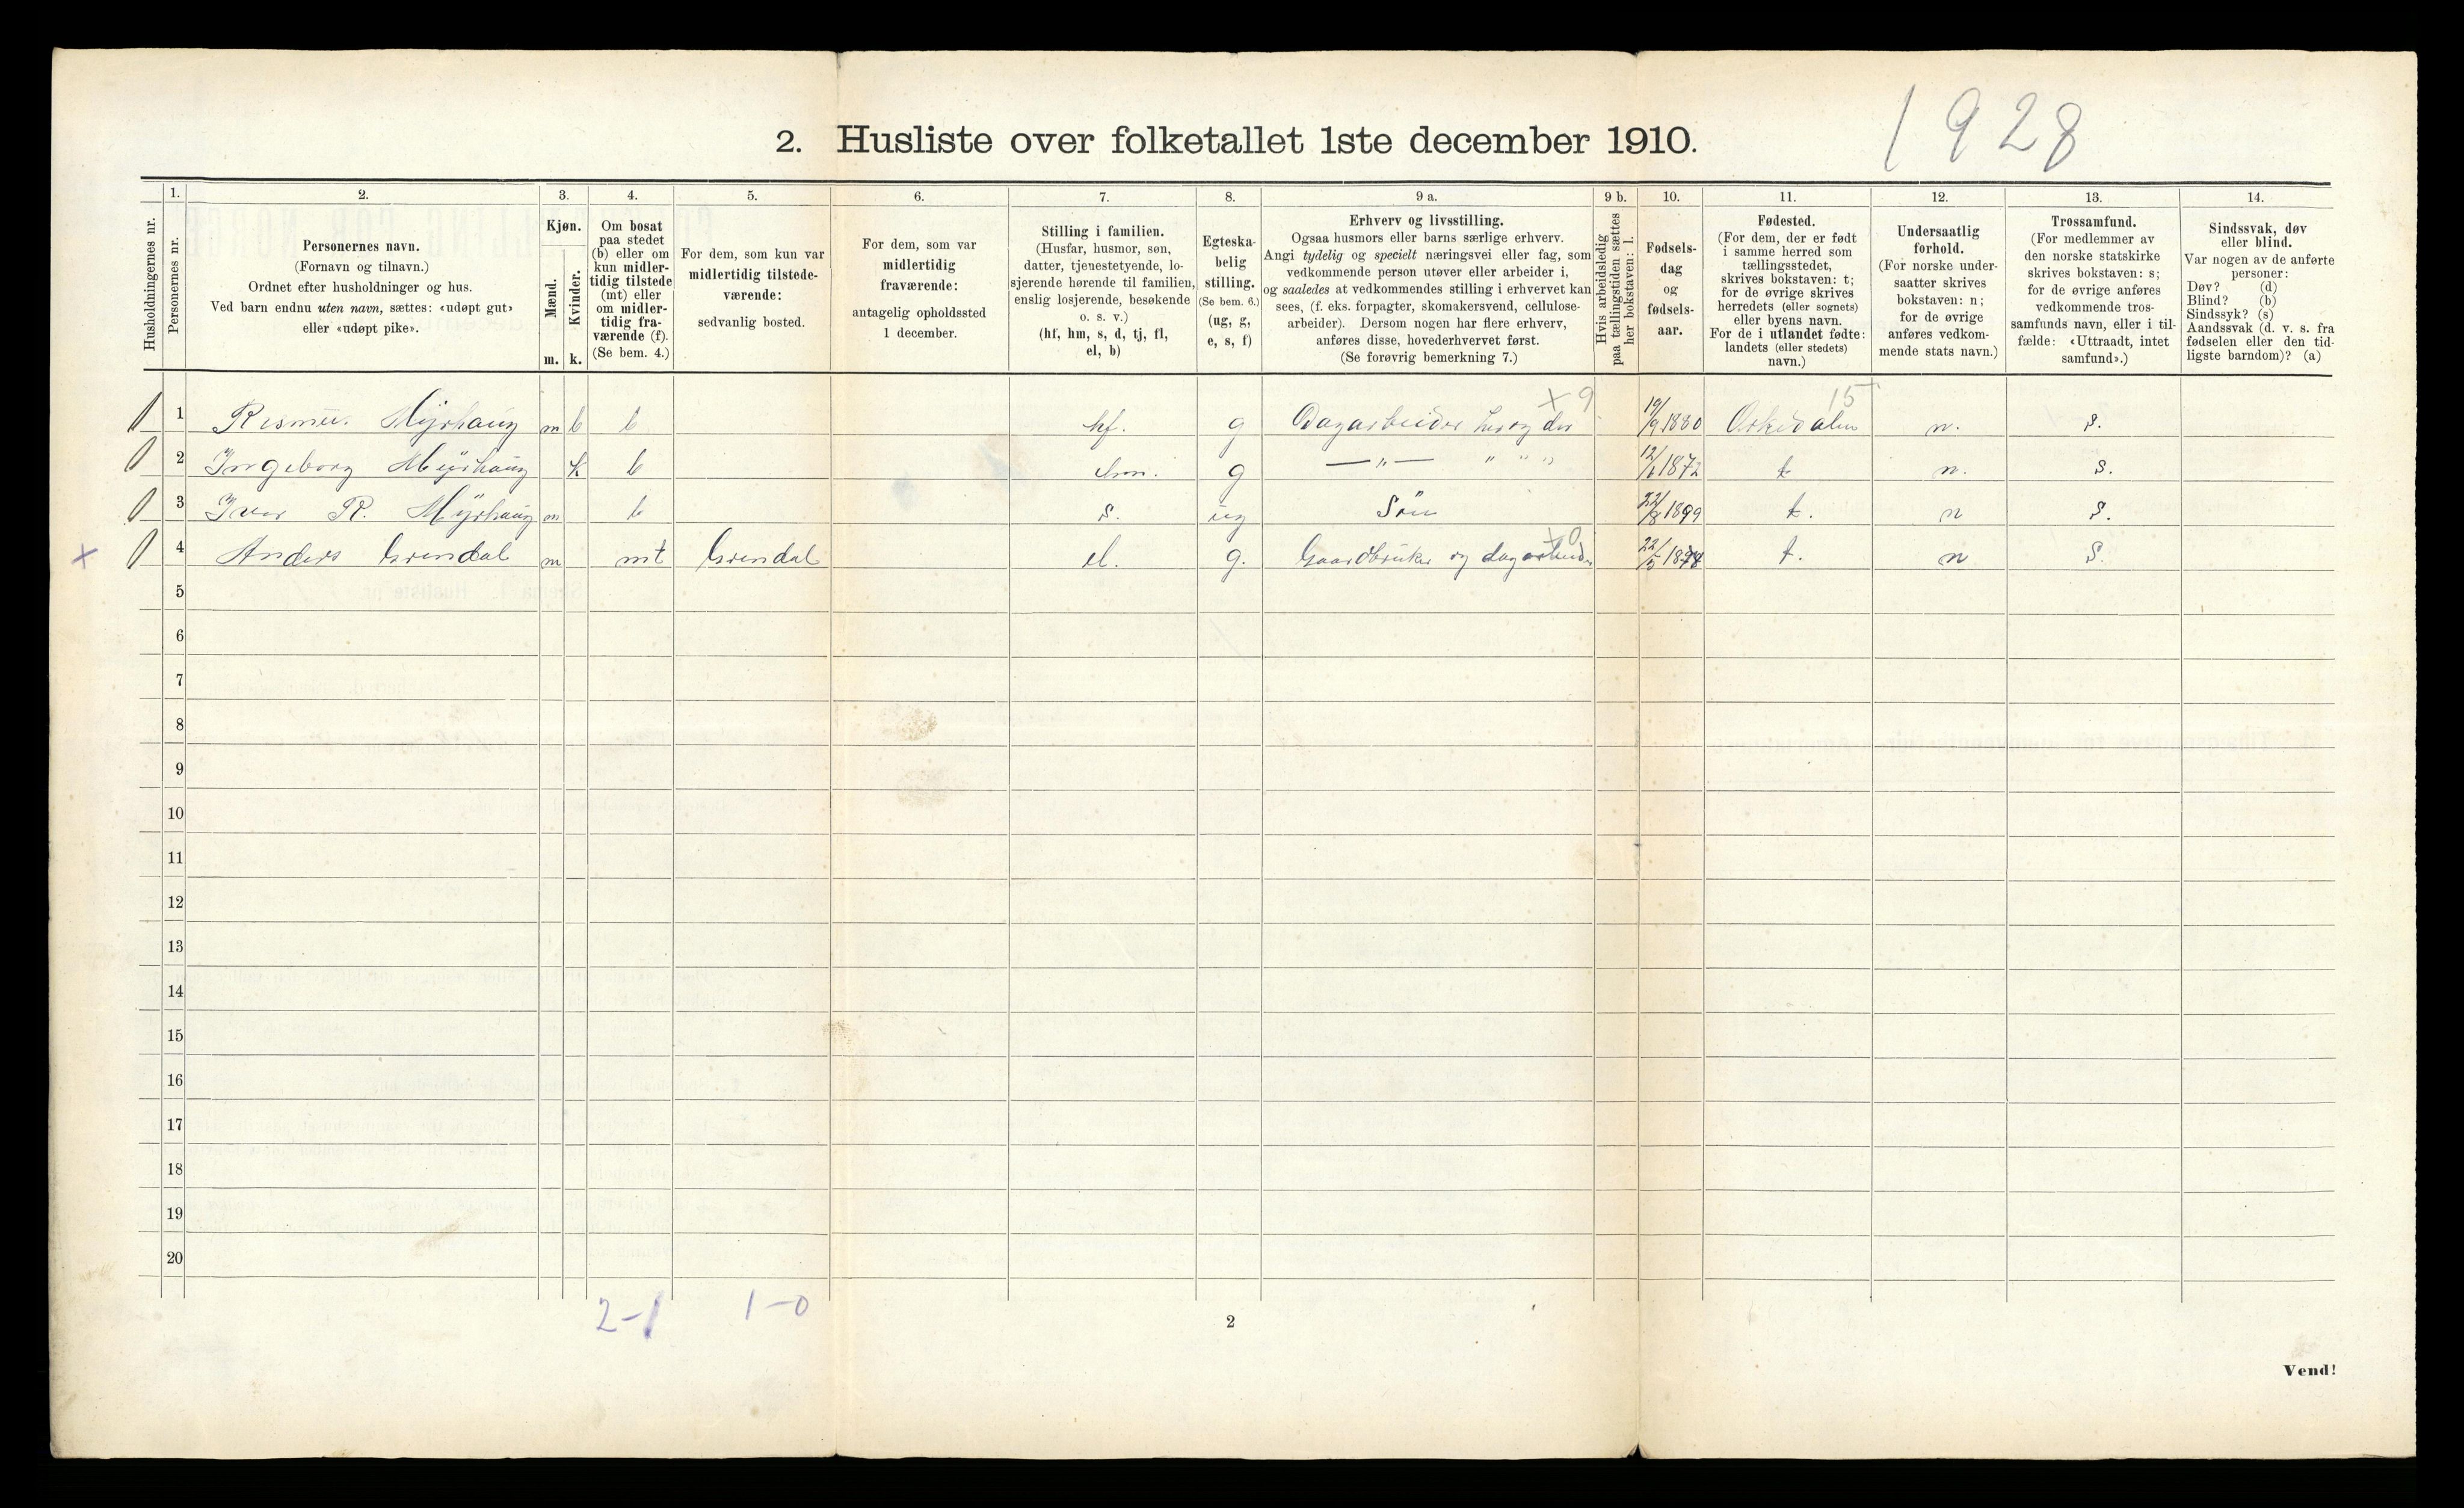 1928
2. Husliste over folketallet 1ste december 1910.
Husholdningernes nr.
1. Personernes nr.
2. Personernes navn. (Fornavn og tilnavn.) Ordnet efter husholdninger og hus. Ved barn endnu uten navn, sættes: «udøpt gut» eller «udøpt pike».
3. Kjøn. Mænd. m. Kvinder. k.
4. Om bosat paa stedet (b) eller om kun midlertidig tilstede (mt) eller om midlertidig fraværende (f). (Se bem. 4.)
5. For dem, som kun var midlertidig tilstedeværende: sedvanlig bosted.
6. For dem, som var midlertidig fraværende: antagelig opholdssted 1 december.
7. Stilling i familien. (Husfar, husmor, søn, datter, tjenestetyende, losjerende hørende til familien, enslig losjerende, besøkende o. s. v.) (hf, hm, s, d, tj, fl, el, b)
8. Egteskabelig stilling. (Se bem. 6.) (ug, g, e, s, f)
9 a. Erhverv og livsstilling. Ogsaa husmors eller barns særlige erhverv. Angi tydelig og specielt næringsvei eller fag, som vedkommende person utøver eller arbeider i, og saaledes at vedkommendes stilling i erhvervet kan sees, (f. eks. forpagter, skomakersvend, cellulosearbeider). Dersom nogen har flere erhverv, anføres disse, hovederhvervet først. (Se forøvrig bemerkning 7.)
9 b. Hvis arbeidsledig paa tællingstiden sættes her bokstaven: l.
10. Fødselsdag og fødselsaar.
11. Fødested. (For dem, der er født i samme herred som tællingsstedet, skrives bokstaven: t; for de øvrige skrives herredets (eller sognets) eller byens navn. For de i utlandet fødte: landets (eller stedets) navn.)
12. Undersaatlig forhold. (For norske undersaatter skrives bokstaven: n; for de øvrige anføres vedkommende stats navn.)
13. Trossamfund. (For medlemmer av den norske statskirke skrives bokstaven: s; for de øvrige anføres vedkommende trossamfunds navn, eller i tilfælde: «Uttraadt, intet samfund».)
14. Sindssvak, døv eller blind. Var nogen av de anførte personer: Døv? (d) Blind? (b) Sindssyk? (s) Aandssvak (d. v. s. fra fødselen eller den tidligste barndom)? (a)
x 9 15
1 Myrhaug m b b hf. g Dagarbeider 19/9 1880 Orkedalen n. s.
2 Ingeborg Myrhaug k b hm. g —"— " " " 12/6 1872 t n. s.
3 Iver R. Myrhaug m b s. ug Søn 22/8 1899 t. n s.
x 0
x 4 Anders Grendal m mt Grendal el. g. Gaardbruker og dagarbeider 22/5 t. n s.
5
6
7
8
9
10
11
12
13
14
15
16
17
18
19
20
2-1 1-0
2
Vend!